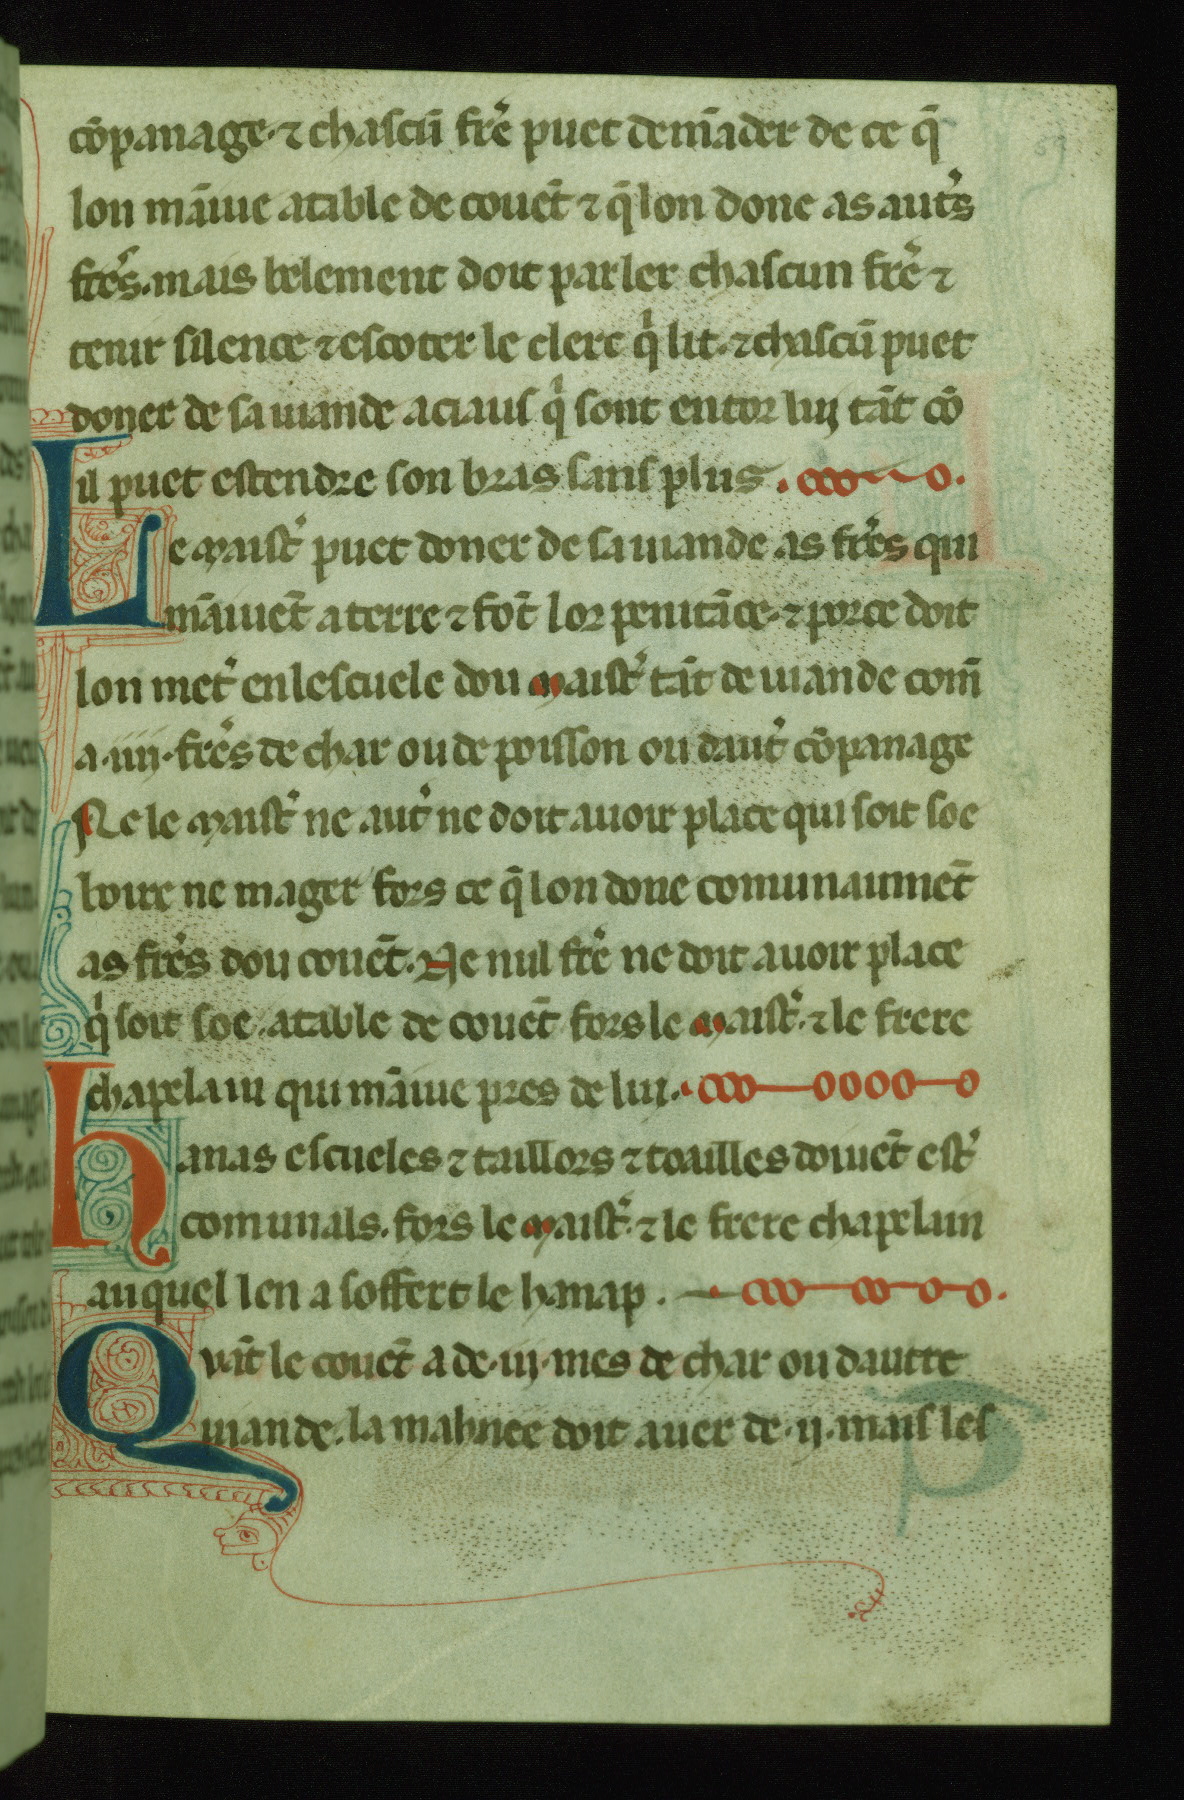 cōpanage · ⁊ chascū frē puet demāder de ce q̄
lon māiue atable de couēt ⁊ q̄ lon done as autͬs
frēs. mais belement doit parler chascun frē ⁊
tenir silence ⁊ escoter le clerc qͥ lit. ⁊ chascū puet
doner de sa uiande a ciaus qͥ sont entor luy tāt cō
il puet estendre son bras sans plus.
Le maistͬ puet doner de sa uiande as frēs qui
māiuēt a terre ⁊ fōt lor penitāce. ⁊ por ce doit
lon metͬ en lescuele dou maistͬ tāt de uiande com̄
a · iiii · frēs de char ou de poisson ou dautͬ cōpanage
Ne le maistͬ ne autͬ ne doit auoir place qui soit soe
boire ne mager fors ce q̄ lon done comunaumēt
as frēs dou couēt. Ne nul frē ne doit auoir place
qͥ soit soe. atable de couēt fors le maistͬ. ⁊ le frere
chapelain qui māiue pres de lui.
hanas escueles ⁊ taillors ⁊ toailles doiuēt estͬ
comunals. fors le maistͬ. ⁊ le frere chapelain
au quel len a soffert le hanap.
Quāt le couēt a de · iij · mes de char ou dautre
uiande. la mahnee doit auer de · ij · mais les